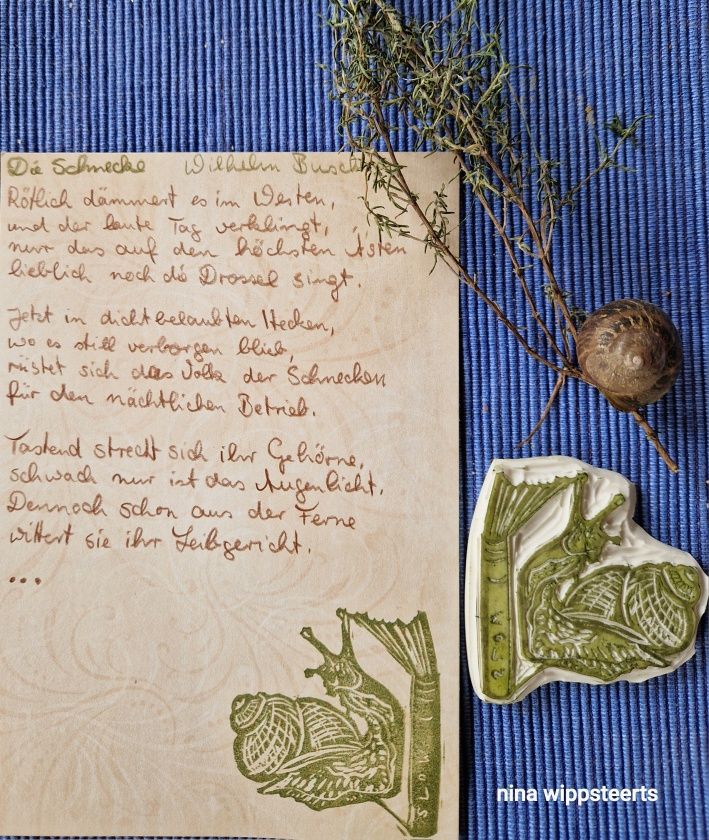 Die Schnecke Wilhelm Busch
Rötlich dämmert es im Westen,
und der laute Tag verklingt,
nur das auf den höchsten Ästen
lieblich noch die Drossel singt.
Jetzt in dichtbelaubten Hecken,
wo es still verborgen blieb,
rüstet sich das Volk der Schnecken
für den nächtlichen Betrieb.
Tastend streckt sich ihr Gehörne,
schwach nur ist das Augenlicht.
Dennoch schon aus der Ferne
wittert sie ihr Leibgericht.
...
nina wippsteerts